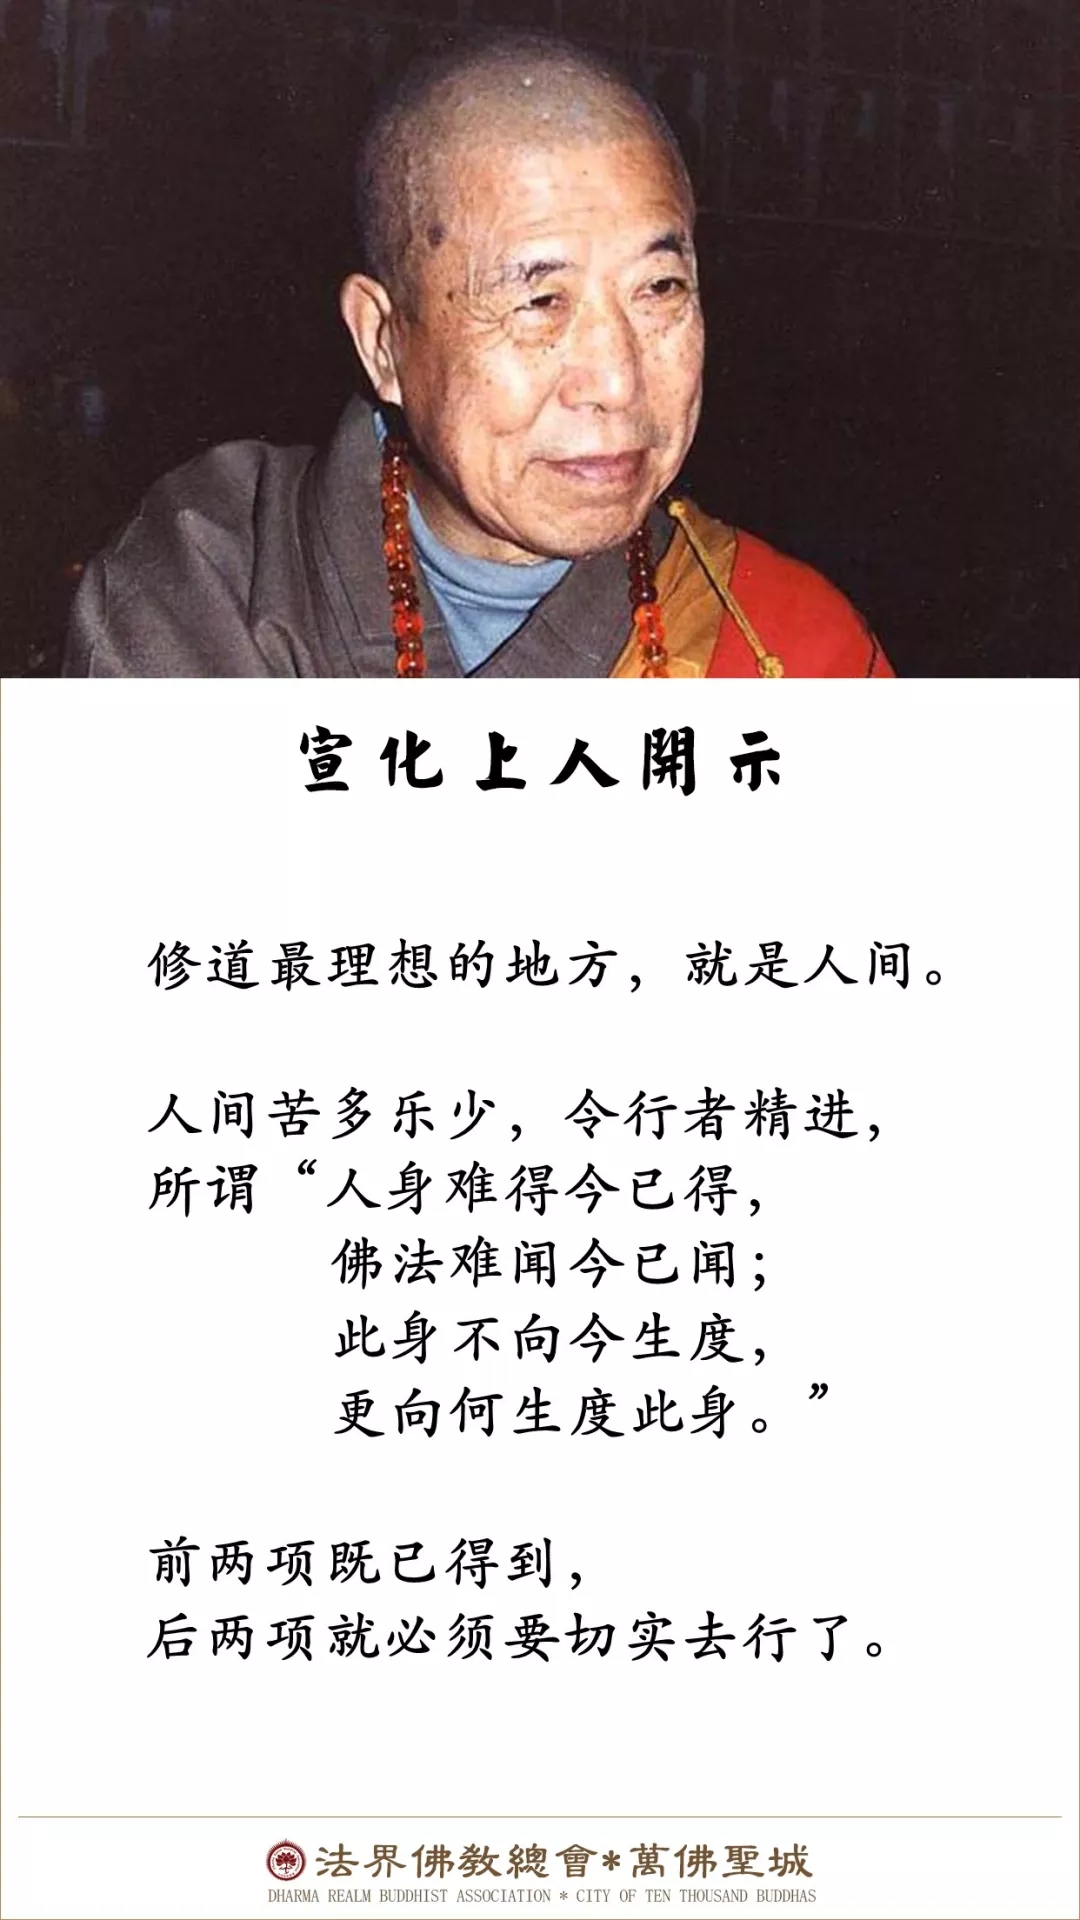 宣化上人開示
修道最理想的地方，就是人间。
人间苦多乐少，令行者精进，
所谓“人身难得今已得，
佛法难闻今已闻；
此身不向今生度，
更向何生度此身。”
前两项既已得到，
后两项就必须要切实去行了。
法界佛教總會*萬佛聖城
DHARMA REALM BUDDHIST ASSOCIATION * CITY OF TEN THOUSAND BUDDHAS